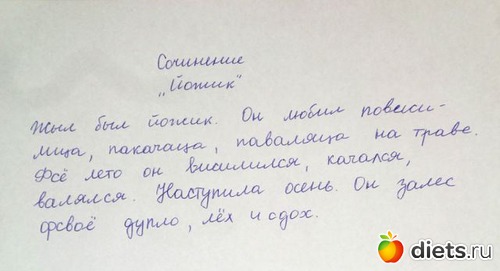 Сочинение
„Йожик"
Жыл был йожик. Он любил повеси-
лица, пакачаца, паваляца на траве.
Фсё лето он висилился, качался,
валялся. Наступила осень. Он залес
фсваё дупло, лёх и сдох.
diets.ru